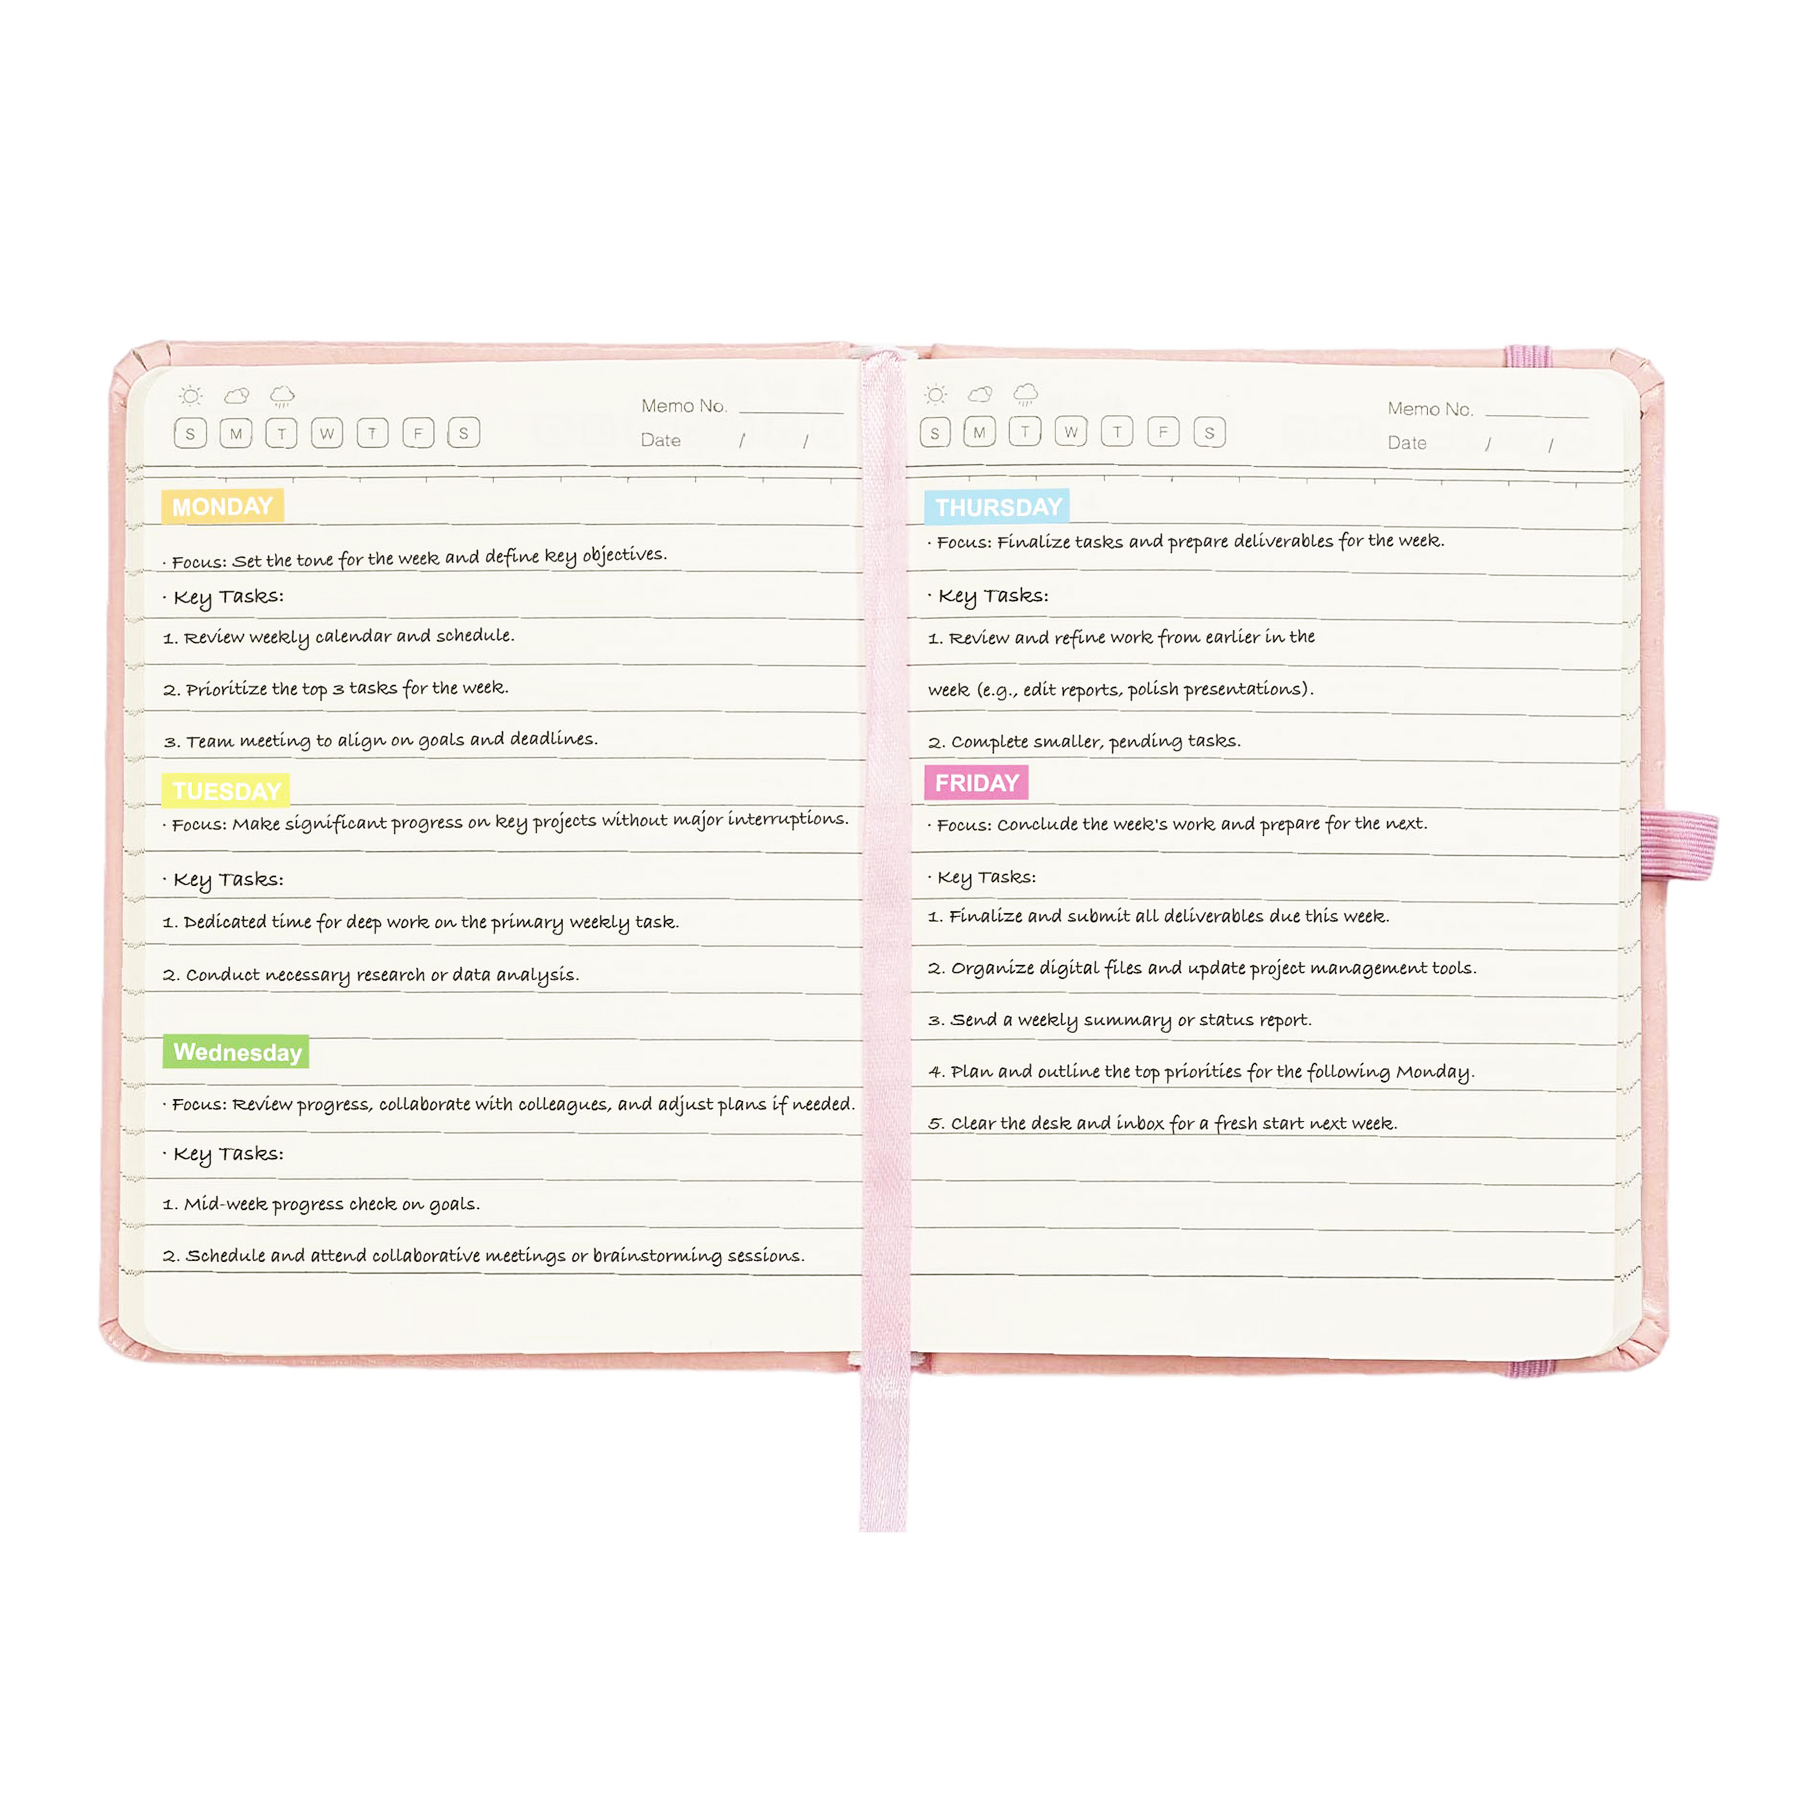 S M T W T F S
Memo No.
Date / /
MONDAY
· Focus: Set the tone for the week and define key objectives.
· Key Tasks:
1. Review weekly calendar and schedule.
2. Prioritize the top 3 tasks for the week.
3. Team meeting to align on goals and deadlines.
TUESDAY
· Focus: Make significant progress on key projects without major interruptions.
· Key Tasks:
1. Dedicated time for deep work on the primary weekly task.
2. Conduct necessary research or data analysis.
Wednesday
· Focus: Review progress, collaborate with colleagues, and adjust plans if needed.
· Key Tasks:
1. Mid-week progress check on goals.
2. Schedule and attend collaborative meetings or brainstorming sessions.
S M T W T F S
Memo No.
Date / /
THURSDAY
· Focus: Finalize tasks and prepare deliverables for the week.
· Key Tasks:
1. Review and refine work from earlier in the
week (e.g., edit reports, polish presentations).
2. Complete smaller, pending tasks.
FRIDAY
· Focus: Conclude the week's work and prepare for the next.
· Key Tasks:
1. Finalize and submit all deliverables due this week.
2. Organize digital files and update project management tools.
3. Send a weekly summary or status report.
4. Plan and outline the top priorities for the following Monday.
5. Clear the desk and inbox for a fresh start next week.